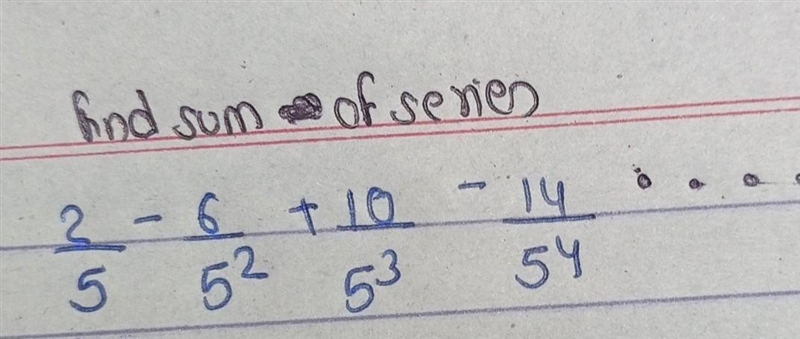 find sum of series
2/5 - 6/5² + 10/5³ - 14/5⁴ ....